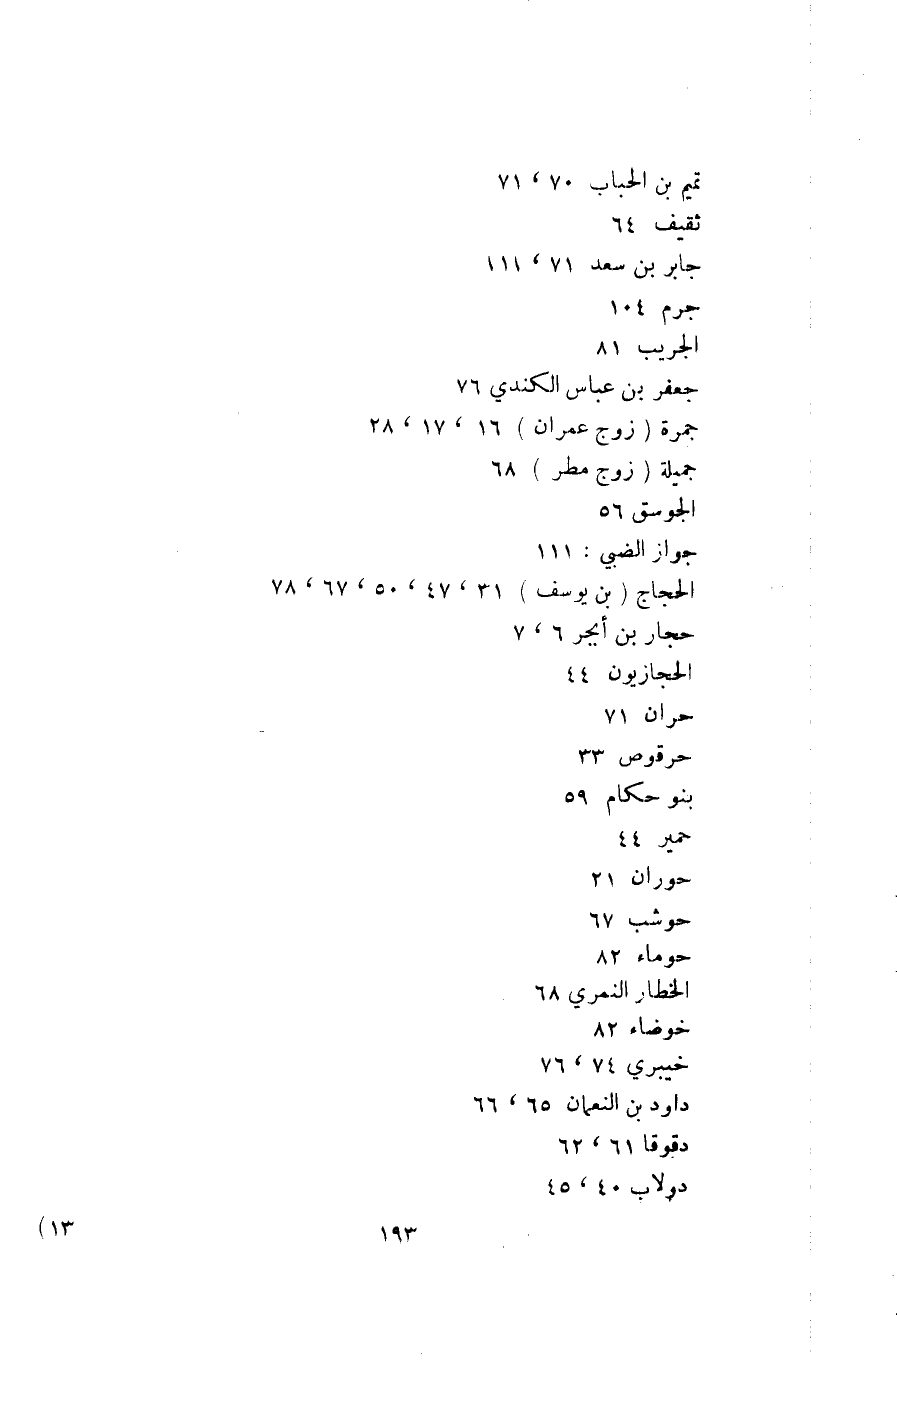 تميم بن الحباب ٧٠ ، ٧١
ثقيف ٦٤
جابر بن سعد ٧١ ، ١١١
جرم ١٠٤
الجريب ٨١
جعفر بن عباس الكندي ٧٦
جمرة ( زوج عمران ) ١٦ ، ١٧ ، ٢٨
جميلة ( زوج مطر ) ٦٨
الجوسق ٥٦
جواز الضبي : ١١١
الحجاج ( بن يوسف ) ٣١ ، ٤٧ ، ٥٠ ، ٦٧ ، ٧٨
حجار بن أبجر ٦ ، ٧
الحجازيون ٤٤
حران ٧١
حرقوص ٣٣
بنو حكام ٥٩
حمير ٤٤
حوران ٢١
حوشب ٦٧
حوماء ٨٢
الخطار النمري ٦٨
خوضاء ٨٢
خيبري ٧٤ ، ٧٦
داود بن النعمان ٦٥ ، ٦٦
دقوقا ٦١ ، ٦٢
دولاب ٤٠ ، ٤٥
١٩٣
(١٣